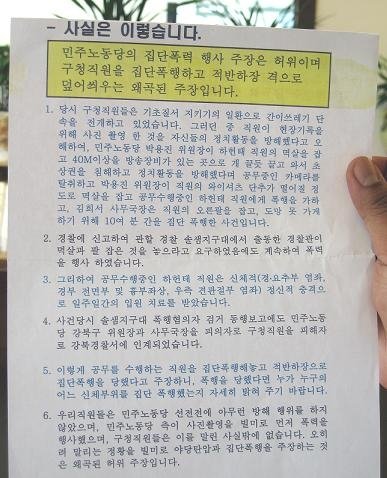 - 사실은 이렇습니다.
민주노동당의 집단폭력 행사 주장은 허위이며
구청직원을 집단폭행하고 적반하장 격으로
덮어씌우는 왜곡된 주장입니다.
1. 당시 구청직원들은 기초질서 지키기의 일환으로 간이쓰레기 단
속을 전개하고 있었습니다. 그러던 중 직원이 현장기록을
위해 사진 촬영 한 것을 자신들의 정치활동을 방해했다고 오
해하여, 민주노동당 박용진 위원장이 하헌태 직원의 멱살을 잡
고 40M이상을 방송장비가 있는 곳으로 개 끌듯 끌고 와서 초
상권을 침해하고 정치활동을 방해했다며 공무중인 카메라를
탈취하고 박용진 위원장이 직원의 와이셔츠 단추가 떨어질 정
도로 멱살을 잡고 공무수행중인 하헌태 직원에게 폭행을 가하
고, 김희서 사무국장은 직원의 오른팔을 잡고, 도망 못 가게
하기 위해 10여 분 간을 집단 폭행한 사건입니다.
2. 경찰에 신고하여 관할 경찰 솔샘지구대에서 출동한 경찰관이
멱살과 팔 잡은 것을 놓으라고 요구하였음에도 계속하여 폭력
을 행사 하였습니다.
3. 그리하여 공무수행중인 하헌태 직원은 신체적(경·요추부 염좌,
경부 전면부 및 흉부좌상, 우측 견관절부 염좌) 정신적 충격으
로 일주일간의 입원 치료를 받았습니다.
4. 사건당시 솔샘지구대 폭행혐의자 검거 동행보고에도 민주노동
당 강북구 위원장과 사무국장을 피의자로 구청직원을 피해자
로 강북경찰서에 인계되었습니다.
5. 이렇게 공무를 수행하는 직원을 집단폭행해놓고 적반하장으로
집단폭행을 당했다고 주장하니, 폭행을 당했다면 누가 누구의
어느 신체부위를 집단 폭행했는지 자세히 밝혀 주기 바랍니다.
6. 우리직원들은 민주노동당 선전전에 아무런 방해 행위를 하지
않았으며, 민주노동당 측이 사진촬영을 빌미로 먼저 폭력을
행사했으며, 구청직원들은 이를 말린 사실밖에 없습니다. 오히
려 말리는 정황을 빌미로 야당탄압과 집단폭행을 주장하는 것
은 왜곡된 허위 주장입니다.